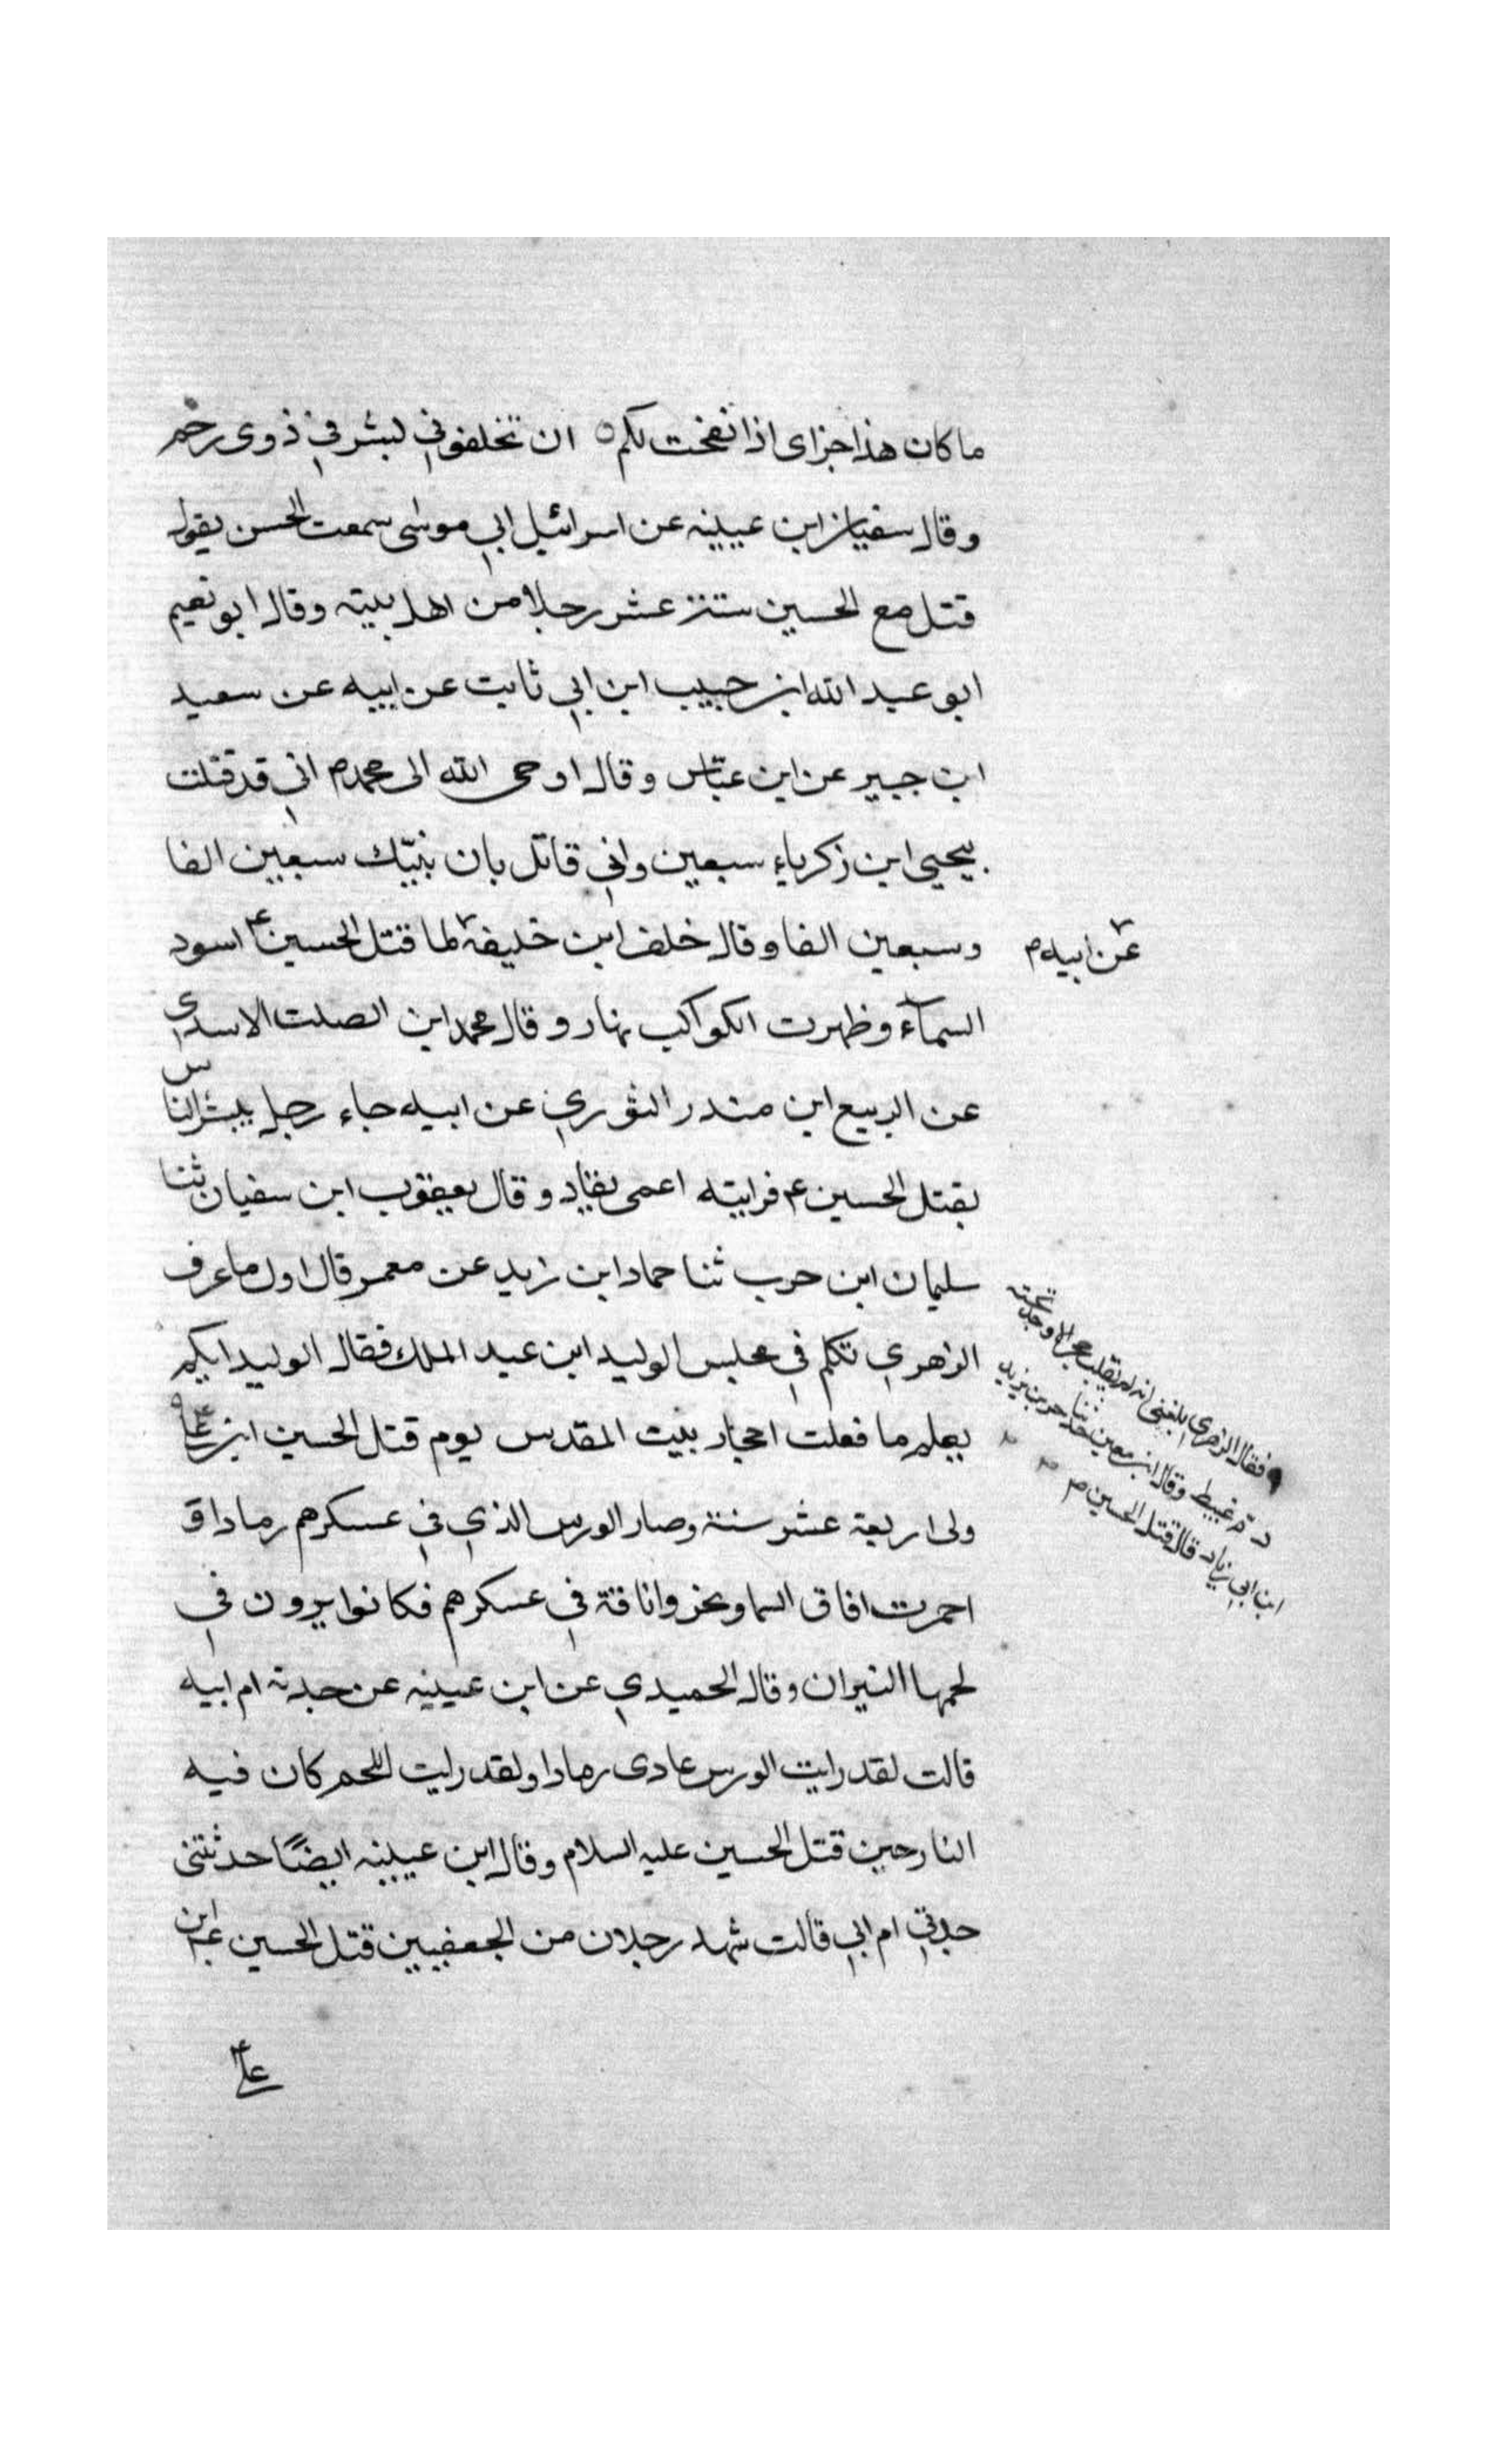 ما كان هذا جزاى اذا نفخت لكم ان تخلفوني لبشر في ذوى رحم
وقال سفيان ابن عيينه عن اسرائيل ابي موسى سمعت الحسن يقول
قتل مع الحسين ستة عشر رجلا من اهل بيته وقال ابو نعيم
ابو عبد الله ابن حبيب ابن ابي ثابت عن ابيه عن سعيد
ابن جبير عن ابن عباس وقال اوحى الله الى محمد م اني قد قتلت
بيحيى ابن زكرياء سبعين واني قاتل بان بنيتك سبعين الفا
وسبعين الفا وقال خلف ابن خليفه لما قتل الحسين ع اسود
عن ابيه م
السمآء وظهرت الكواكب نهار وقال محمد ابن الصلت الاسدي
عن الربيع ابن مندر الثوري عن ابيه جاء رجل يبشر الناس
بقتل الحسين ع فرايته اعمى يقاد وقال يعقوب ابن سفيان ثنا
سليمان ابن حرب ثنا حماد ابن زيد عن معمر قال اول ما عرف
الزهري تكلم في مجلس الوليد ابن عبد الملك فقال الوليد ايكم
يعلم ما فعلت احجار بيت المقدس يوم قتل الحسين ابن علي
فقال الزهري بلغني انه لم يقلب حجر الا وجد تحته
دم عبيط وقال ابن معين حدثنا جرير بن يزيد
ابن ابي زياد قال قتل الحسين م
ولى اربعة عشر سنة وصار الورس الذي في عسكرهم رمادا و
احمرت افاق السما ونحروا ناقة في عسكرهم فكانوا يرون في
لحمها النيران وقال الحميدي عن ابن عيينه عن جدته ام ابيه
قالت لقد رايت الورس عادى رمادا ولقد رايت اللحم كان فيه
النار حين قتل الحسين عليه السلام وقال ابن عيينه ايضًا حدثتني
جدتي ام ابي قالت شهد رجلان من الجعفيين قتل الحسين ابن
علي